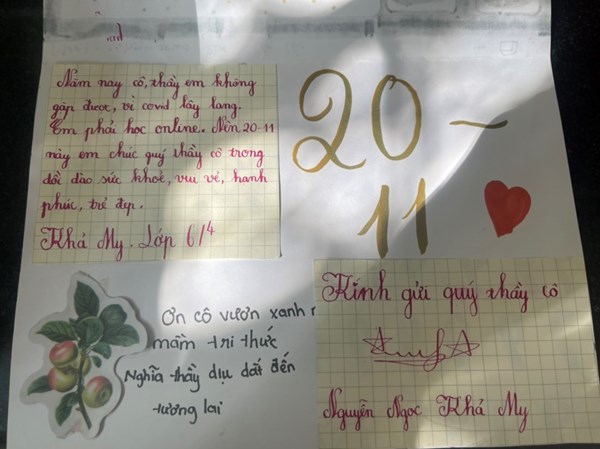 Năm nay cô, thầy em không
gặp được, vì covid lây lang.
Em phải học online. Nên 20-11
này em chúc quý thầy cô trong
dồi dào sức khoẻ, vui vẻ, hanh
phúc, trẻ đẹp.
Khả My. Lớp 6/4
20 -
11
Ơn cô vươn xanh
mầm tri thức
Nghĩa thầy dịu dắt đến
tương lai
Kính gửi quý thầy cô
Nguyễn Ngọc Khả My